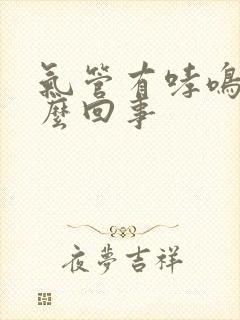 氣管有哮鳴
麼回事
夜夢吉祥